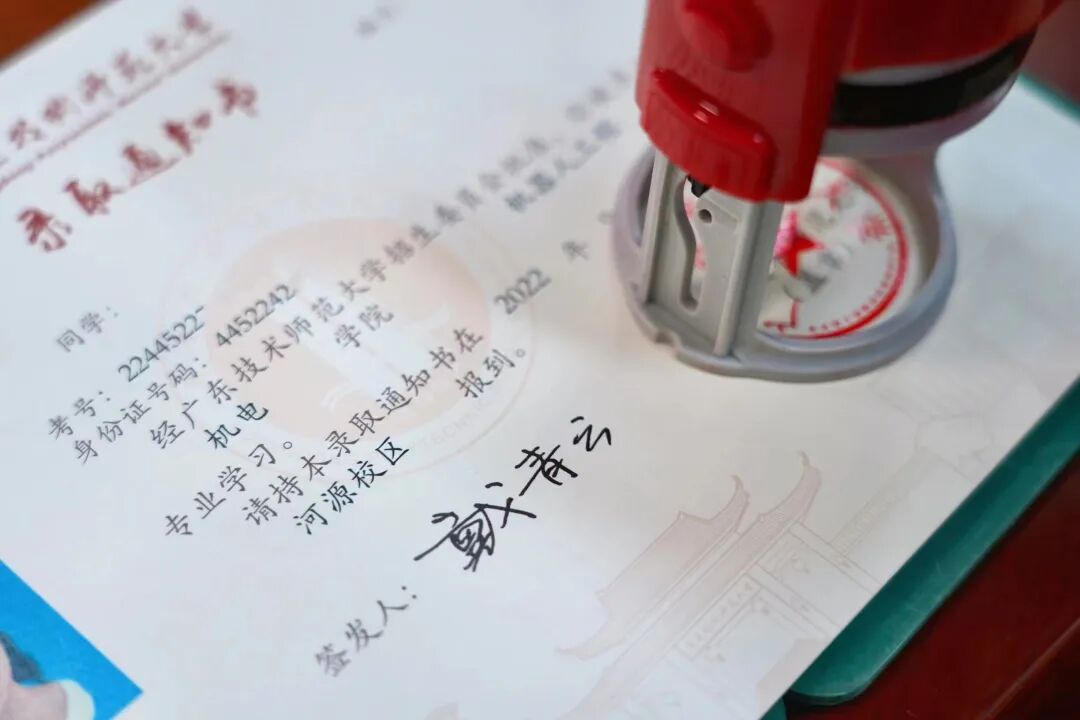 技术师范大学
录取通知书
同学：
考号：2244522
身份证号码：4452242
经广东技术师范大学招生委员会批准，
机电 学院 机器人工程
专业学习。
请持本录取通知书在 2022 年
河源校区 报到。
签发人：戴青云